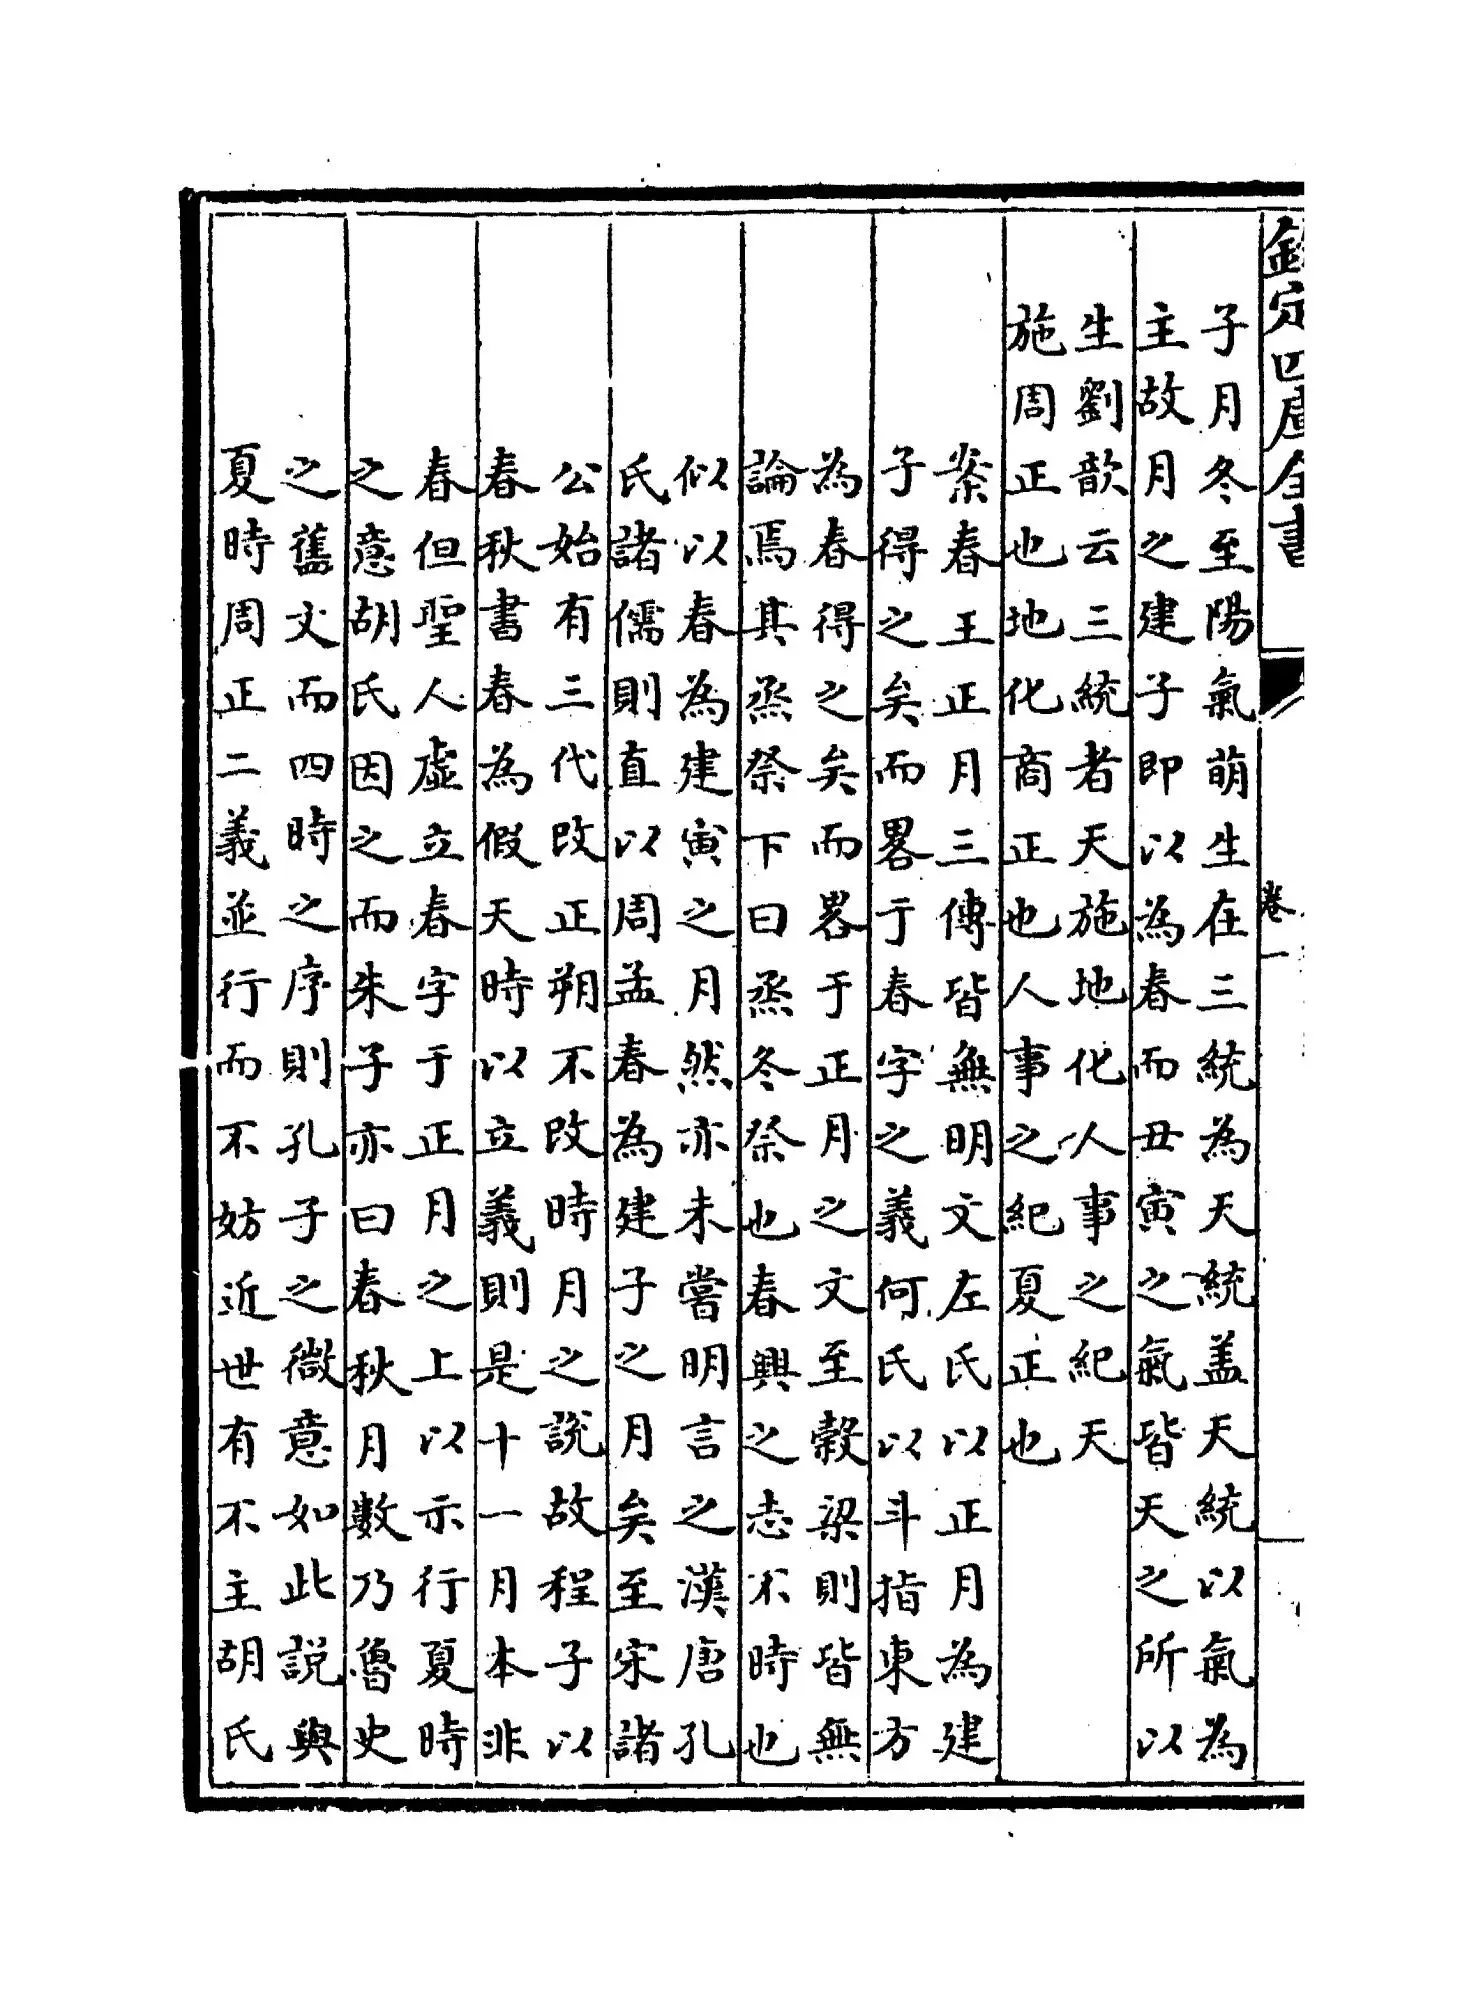 欽定四庫全書
卷一
子月冬至陽氣萌生在三統為天統盖天統以氣為
主故月之建子即以為春而丑寅之氣皆天之所以
生劉歆云三統者天施地化人事之紀天
施周正也地化商正也人事之紀夏正也
案春王正月三傳皆無明文左氏以正月為建
子得之矣而畧于春字之義何氏以斗指東方
為春得之矣而畧于正月之文至穀梁則皆無
論焉其烝祭下曰烝冬祭也春興之志不時也
似以春為建寅之月然亦未嘗明言之漢唐孔
氏諸儒則直以周孟春為建子之月矣至宋諸
公始有三代改正朔不改時月之說故程子以
春秋書春為假天時以立義則是十一月本非
春但聖人虛立春字于正月之上以示行夏時
之意胡氏因之而朱子亦曰春秋月數乃魯史
之舊文而四時之序則孔子之微意如此説與
夏時周正二義並行而不妨近世有不主胡氏